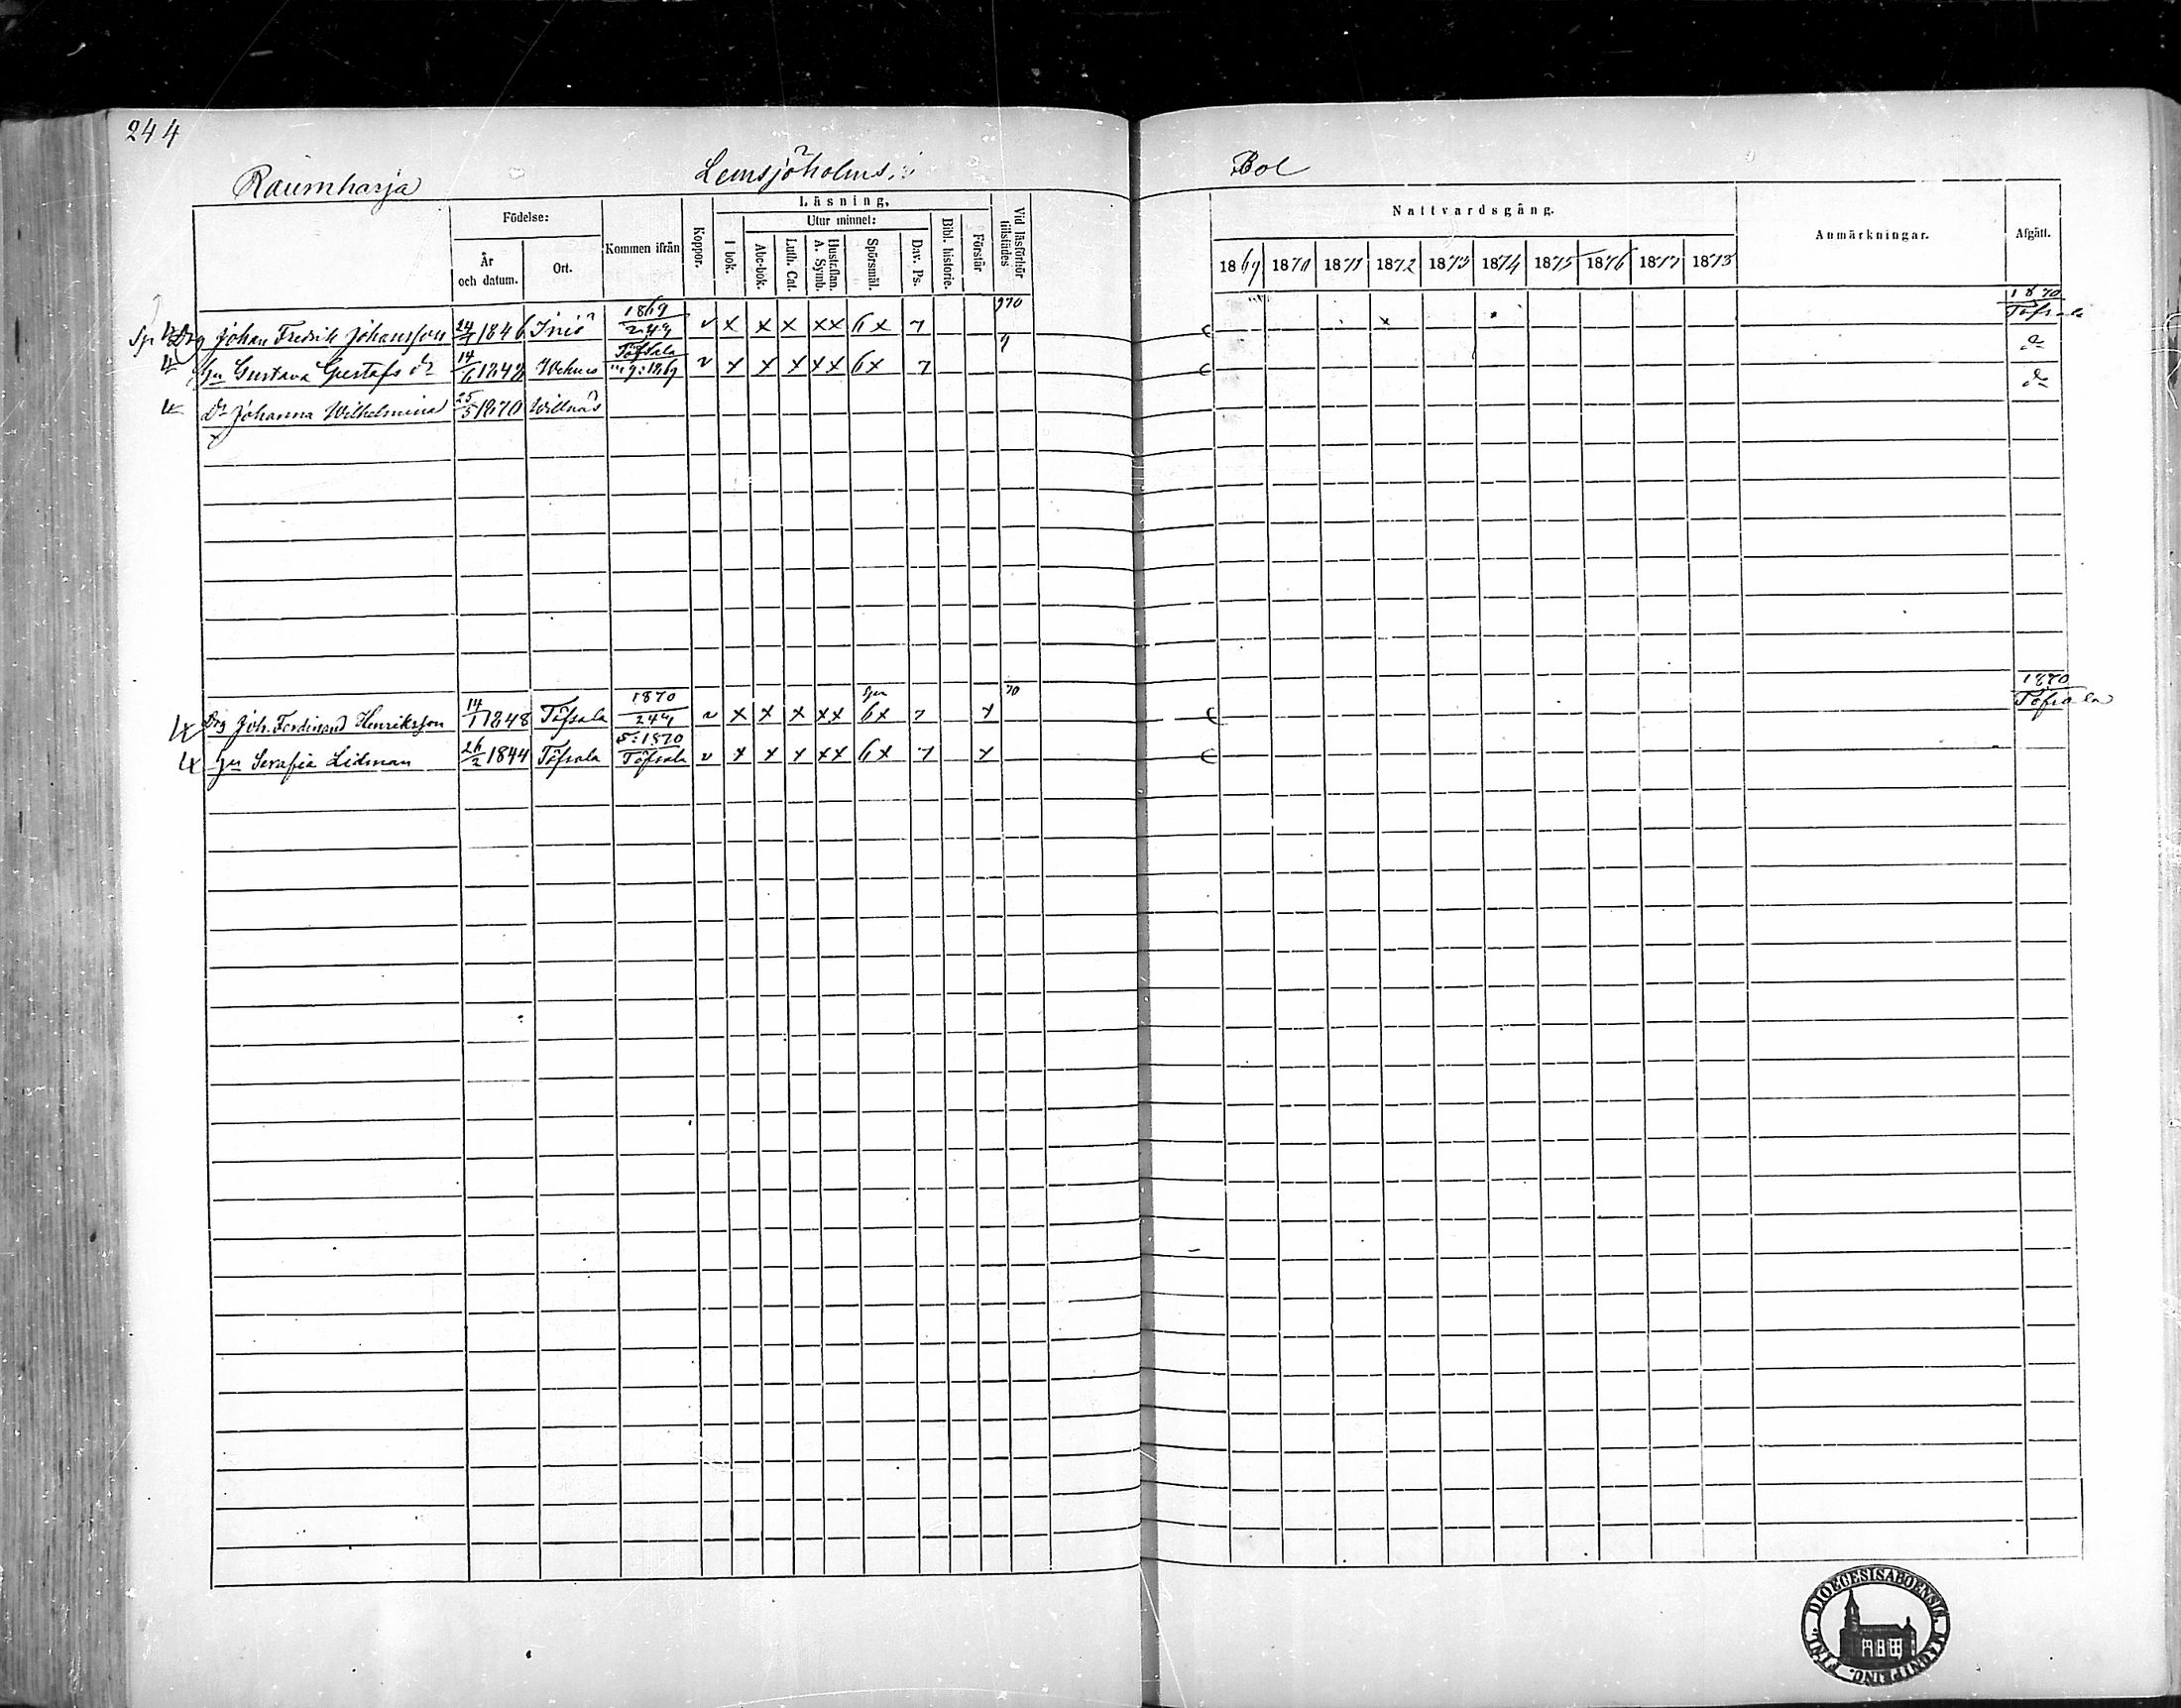 244
Raumharja Lemsjöholms Bol
Födelse: Kommen ifrån Koppor. Läsning. Vid läsförhör tillstädes Nattvardsgång. Anmärkningar. Afgått.
År och datum. Ort. I bok. Utur minnet: Bibl. historie. Förstår
Abc-bok. Luth. Cat. Hustaflan. A. Symb. Spörsmål. Dav. Ps.
1869 1870 1871 1872 1873 1874 1875 1876 1877 1878
1869 970 1870
Drg Johan Fredrik Johansson 24/ 1846 Iniö 249 v x x x xx 6x 7 Töfsala
Töfsala
hu Gustava Gustafs dr 14/6 1848 Wehmo 9:1869 v x x x xx 6x 7 do
dr Johanna Wilhelmina 25/5 1870 Willnäs do
1870 70 1870
Drg Joh. Ferdinand Henriksson 14/1 1848 Töfsala 244 v x x x xx 6x 7 x Töfsala
5:1870
hu Serafia Lidman 26/2 1844 Töfsala Töfsala v x x x xx 6x 7 x
DIOECESIS ABOENSIS. MAGNI PRINC. FINL.